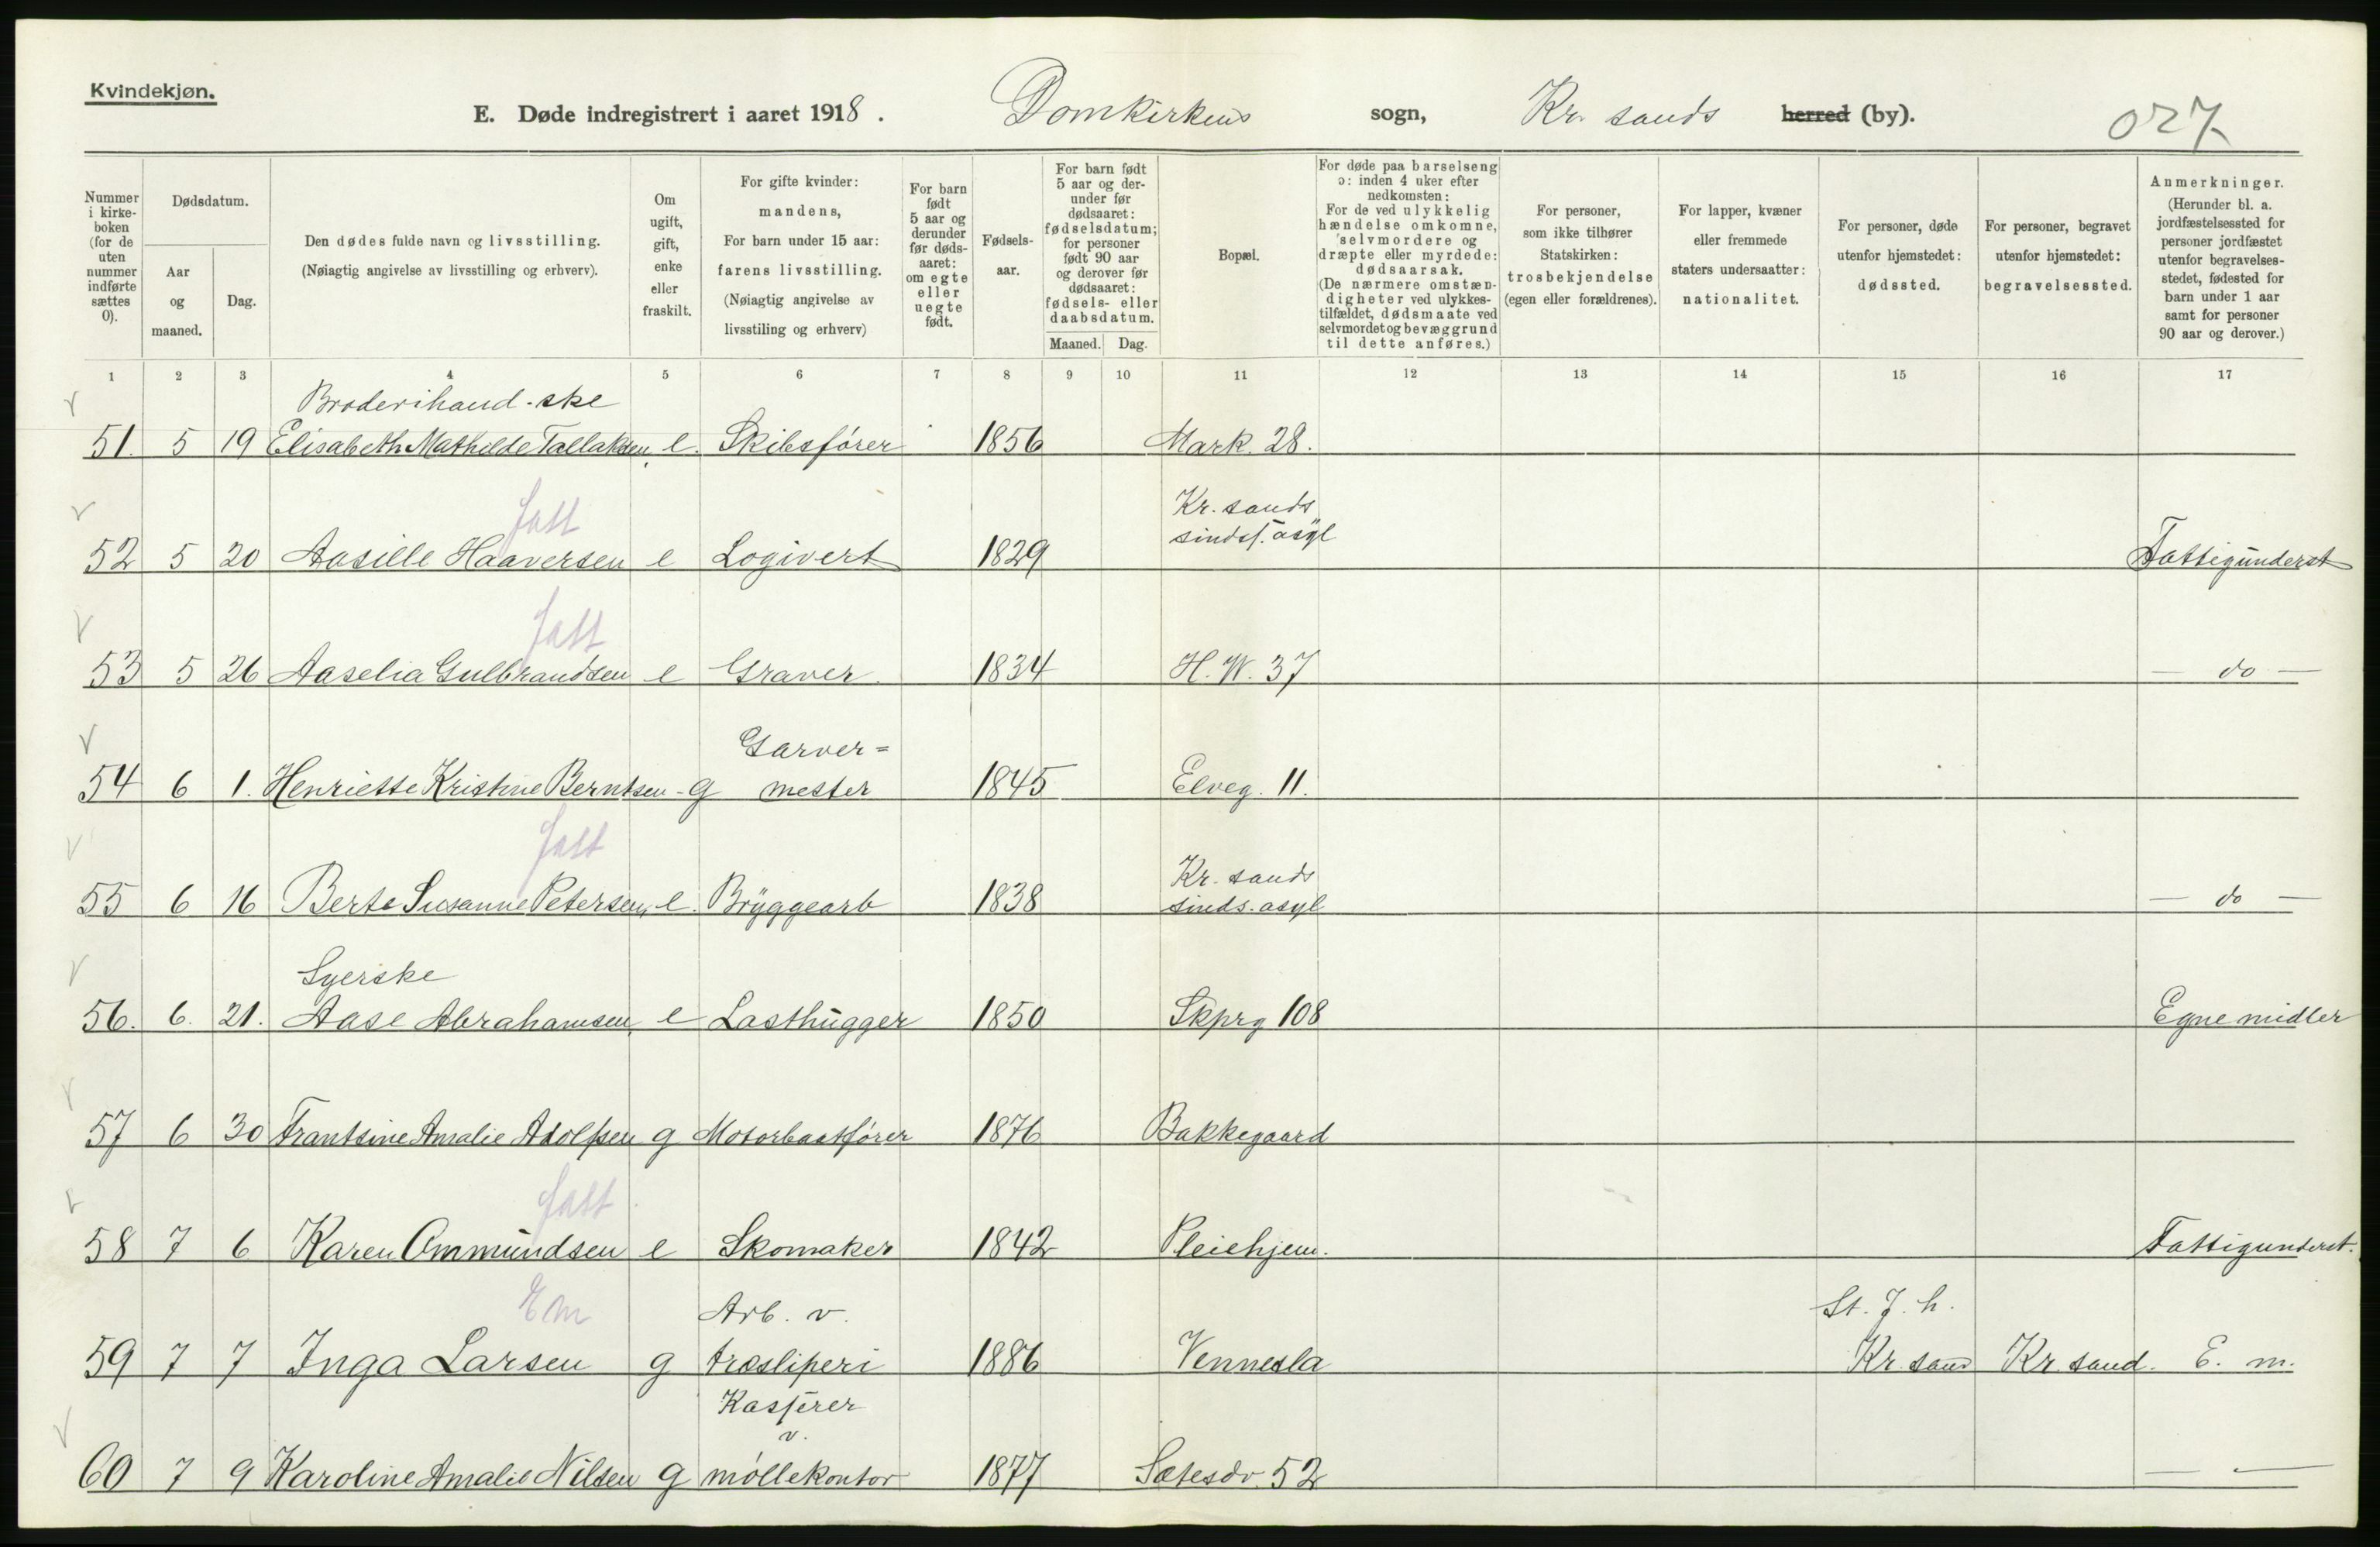 Kvindekjøn.
E. Døde indregistrert i aaret 1918. Domkirkens sogn, Kr. sands herred (by). 027
Nummer i kirkeboken (for de uten nummer indførte sættes 0).
Dødsdatum.
Aar og maaned.
Dag.
Den dødes fulde navn og livsstilling.
(Nøiagtig angivelse av livsstilling og erhverv).
Om ugift, gift, enke eller fraskilt.
For gifte kvinder: mandens,
For barn under 15 aar: farens livsstilling.
(Nøiagtig angivelse av livsstiling og erhverv)
For barn født 5 aar og derunder før dødsaaret: om egte eller uegte født.
Fødselsaar.
For barn født 5 aar og derunder før dødsaaret: fødselsdatum; for personer født 90 aar og derover før dødsaaret: fødsels- eller daabsdatum.
Maaned. Dag.
Bopæl.
For døde paa barselseng ɔ: inden 4 uker efter nedkomsten:
For de ved ulykkelig hændelse omkomne, selvmordere og dræpte eller myrdede: dødsaarsak.
(De nærmere omstændigheter ved ulykkestilfældet, dødsmaate ved selvmordet og bevæggrund til dette anføres.)
For personer, som ikke tilhører Statskirken: trosbekjendelse (egen eller forældrenes).
For lapper, kvæner eller fremmede staters undersaatter: nationalitet.
For personer, døde utenfor hjemstedet: dødssted.
For personer, begravet utenfor hjemstedet: begravelsessted.
Anmerkninger.
(Herunder bl. a. jordfæstelsessted for personer jordfæstet utenfor begravelsesstedet, fødested for barn under 1 aar samt for personer 90 aar og derover.)
1 2 3 4 5 6 7 8 9 10 11 12 13 14 15 16 17
Broderihand-ske
51. 5 19 Elisabeth Mathilde Tallaksen, e. Skibsfører 1856 Mark. 28.
fatt Kr. sands
sindss. asyl
52 5 20 Aasille Haaversen e Logivert 1829 Fattigunderst
fatt
53 5 26 Aaselia Gulbrandsen e Graver 1834 H. W. 37 — do —
Garver=
54 6 1. Henriette Kristine Berntsen - g mester 1845 Elveg. 11.
fatt Kr. sands
55 6 16 Berte Susanne Petersen, e. Bryggearb 1838 sinds. asyl — do —
Syerske
56. 6. 21. Aase Abrahamsen, e Lasthugger 1850 Skprg 108 Egne midler
57 6 30 Frantsine Amalie Adolfsen g Motorbaatfører 1876 Bakkegaard
fatt
58 7 6 Karen Ommundsen e Skomaker 1842 Pleiehjem. Fattigunderst.
Em Arb. v. St. J. h.
59 7 7 Inga Larsen g træsliperi 1886 Vennesla Kr. sand Kr. sand. E. m.
Kasserer
v.
60 7 9 Karoline Amalie Nilsen g møllekontor 1877 Sætesdv. 52 — —